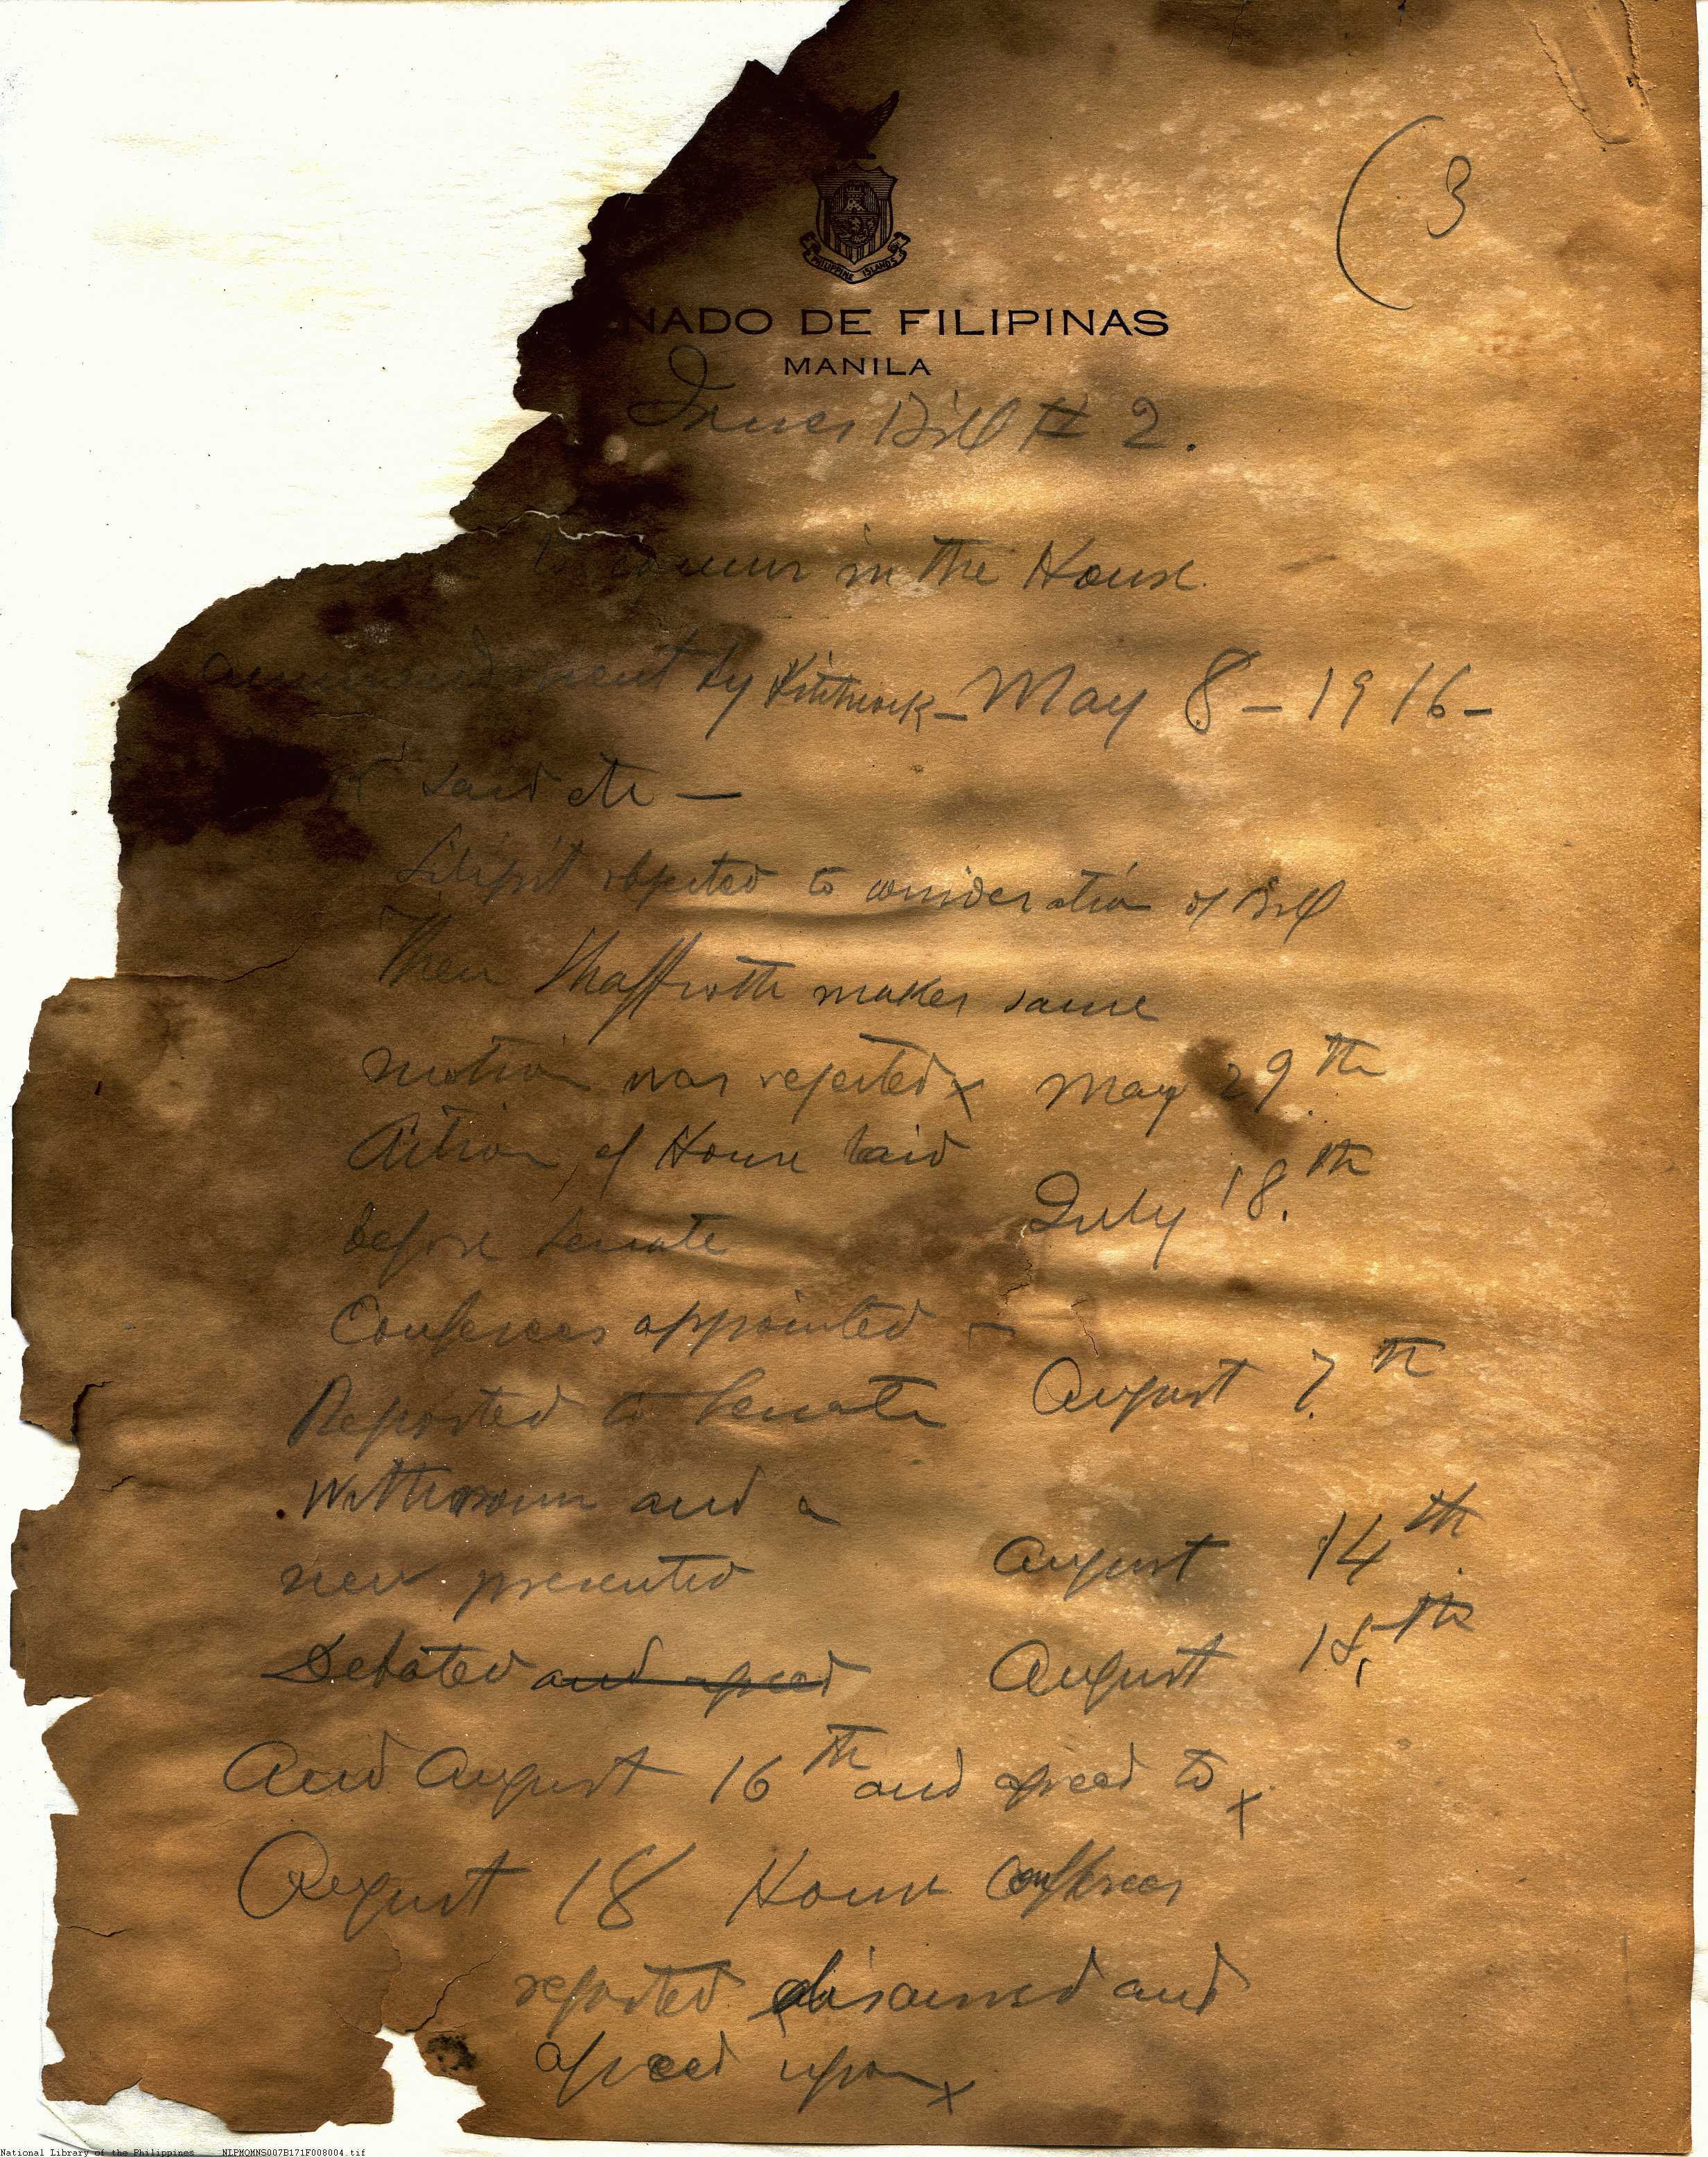 (3
PHILIPPINE ISLANDS
NADO DE FILIPINAS
MANILA
Jones Bill # 2.
in the House.
by Kitchuck - May 8 - 1916 -
said etc —
objected to consideration of Bill
Then Shaffroth makes same
motion was rejected x May 29th
Action of House laid
before Senate July 18.th
Conferees appointed —
Reported to Senate August 7.th
Withdrawn and a
new presented August 14th
Debated and agreed August 15th
And August 16th and agreed to x
August 18 House Conferees
reported and
agreed upon x
National Library of the Philippines NLPMQMNS007B171F008004.tif